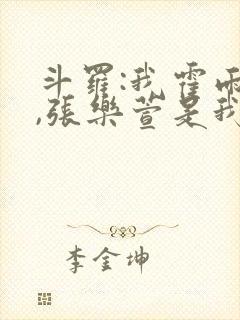 斗羅:我霍雨
,張樂萱是我
李金坤